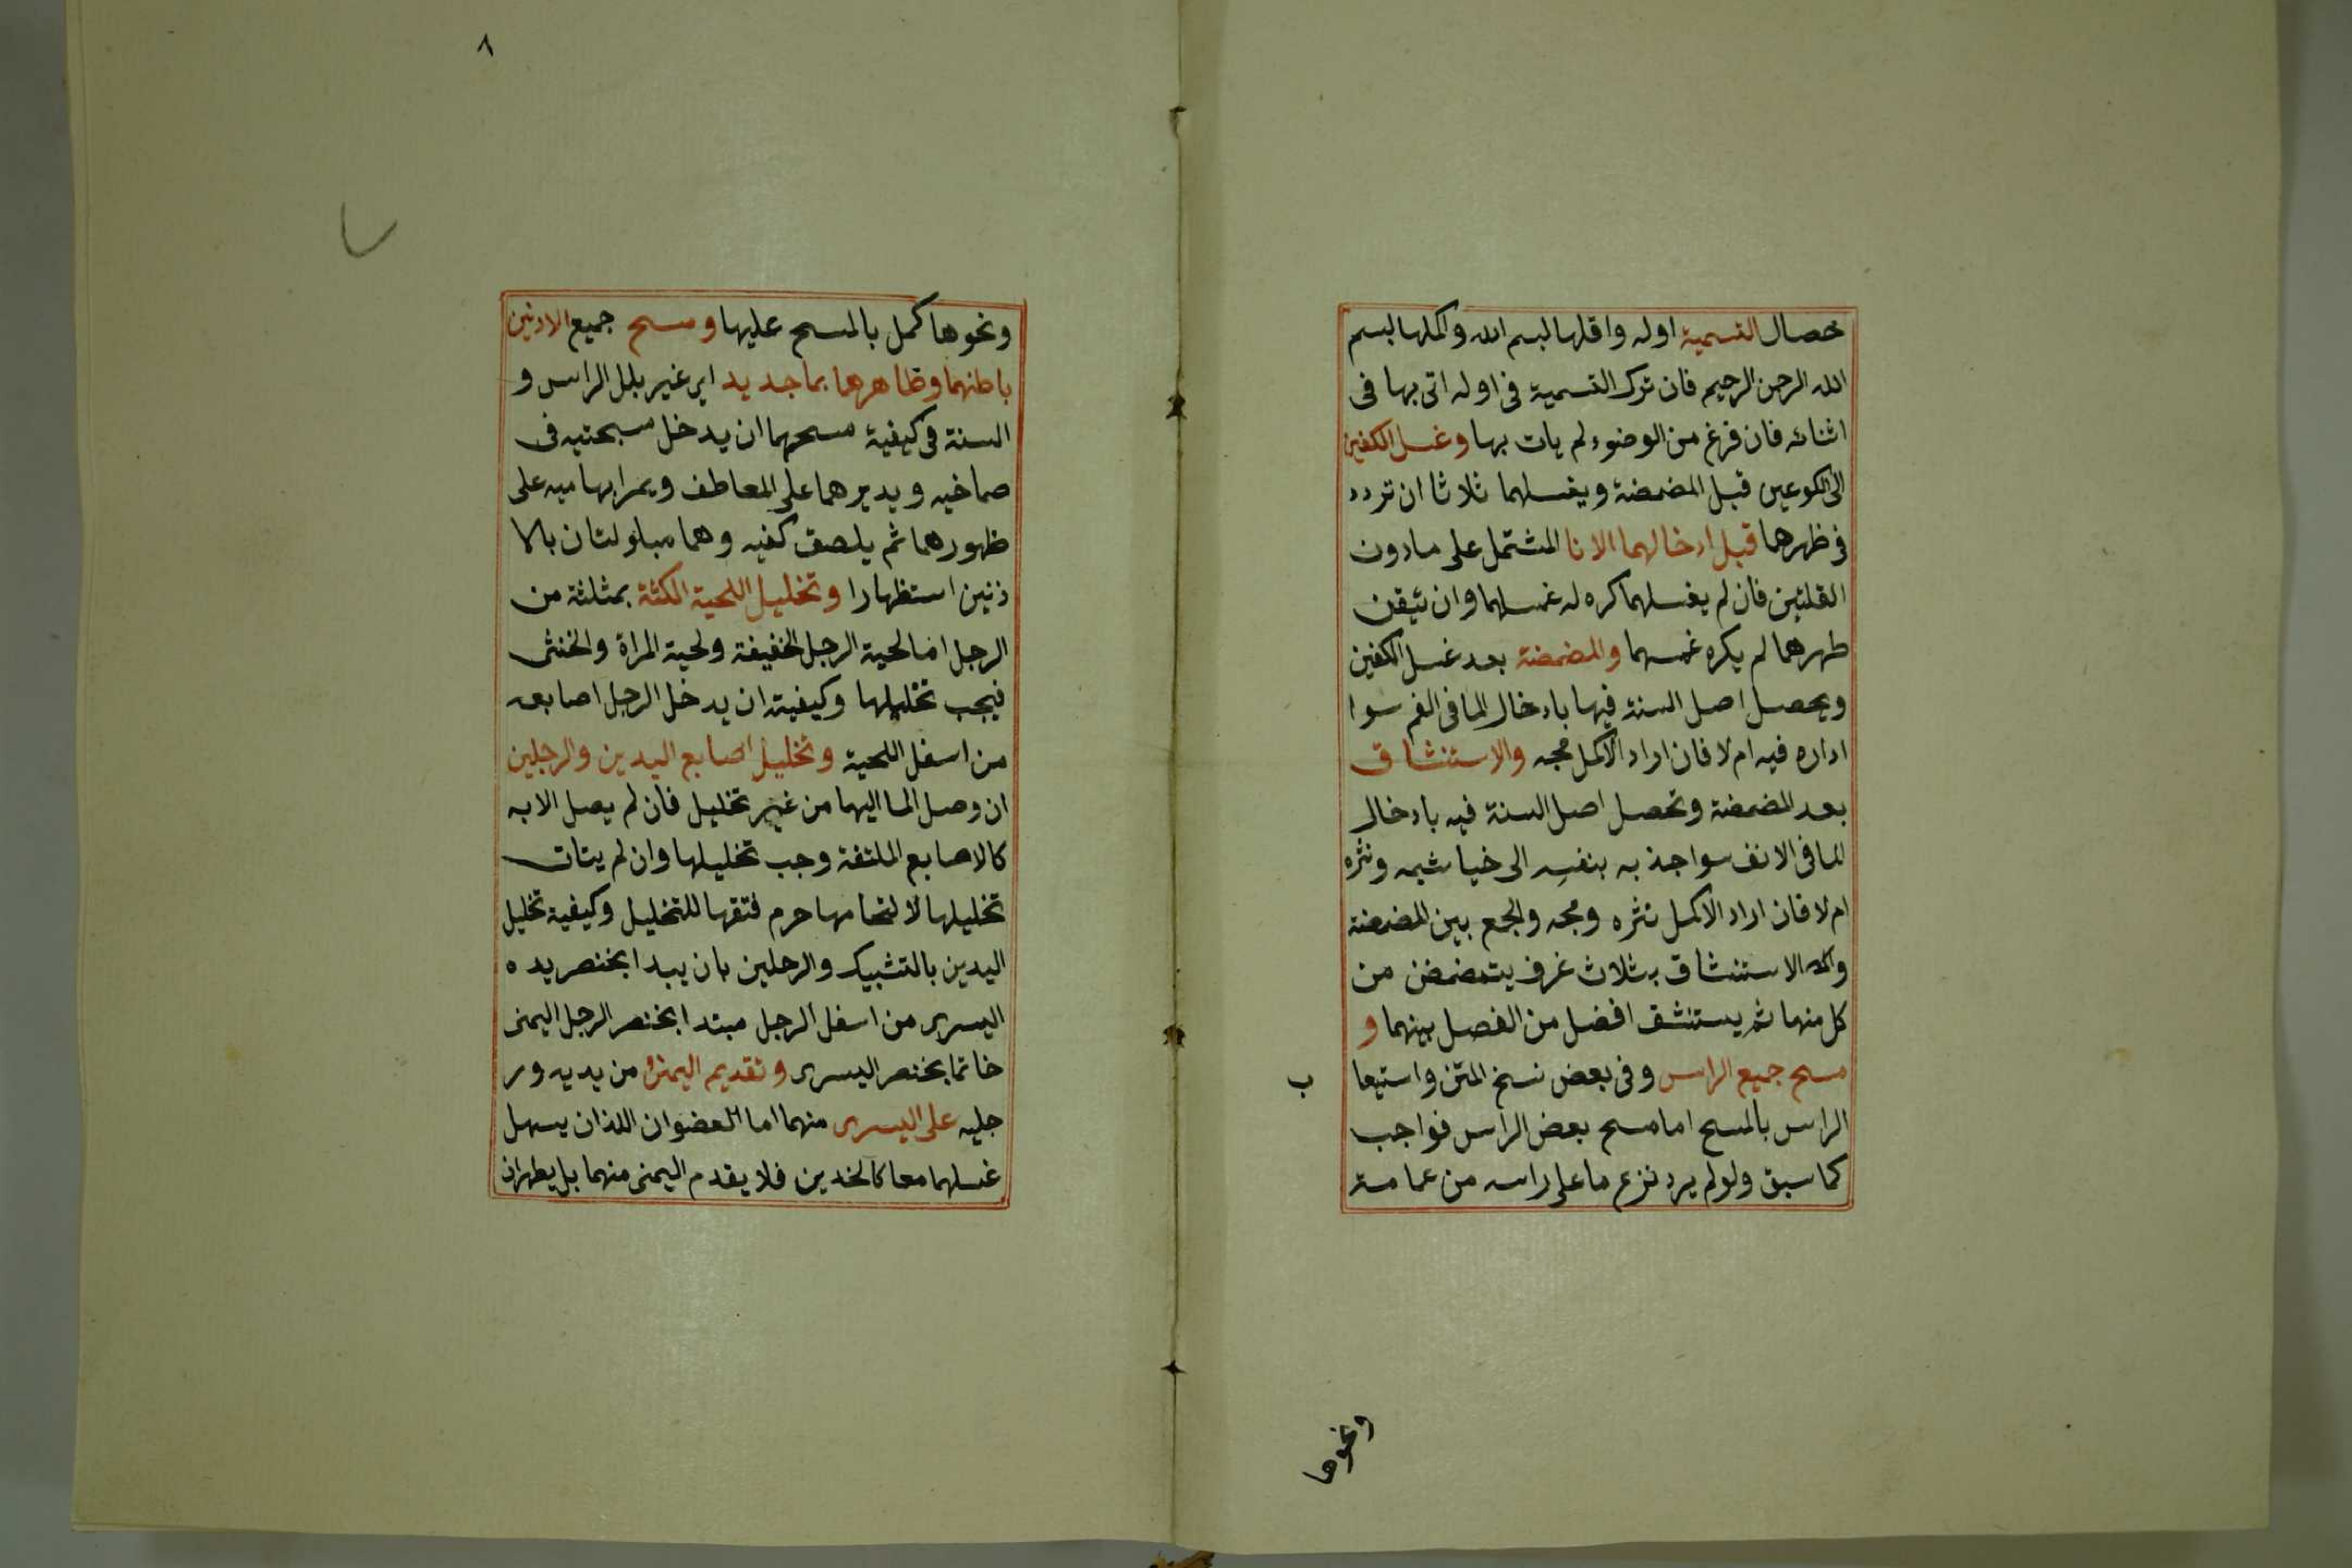 خصال التسمية اوله واقلها بسم الله واكملها بسم
الله الرحمن الرحيم فان ترك التسمية فى اوله اتى بها فى
اثنائه فان فرغ من الوضوء لم يات بها وغسل الكفين
الى الكوعين قبل المضمضة ويغسلهما ثلاثا ان تردد
فى ظهرهما قبل ادخالهما الانا المشتمل على مادون
القلتين فان لم يغسلهما كره له غمسهما وان تيقن
طهرهما لم يكره غمسهما والمضمضة بعد غسل الكفين
ويحصل اصل السنة فيها بادخال الما فى الفم سوا
اداره فيه ام لا فان اراد الاكمل مجه والاستنشاق
بعد المضمضة وتحصل اصل السنة فيه بادخال
الما فى الانف سوا جذبه بنفسه الى خياشيمه ونثره
ام لا فان اراد الاكمل نثره ومجه والجمع بين المضمضة
والاستنشاق بثلاث غرف يتمضمض من
كل منهما ثم يستنشق افضل من الفصل بينهما و
مسح جميع الراس وفى بعض نسخ المتن واستيعا
ب
الراس بالمسح اما مسح بعض الراس فواجب
كما سبق ولو لم يرد نزع ما على راسه من عمامته
ونحوها
٨
ونحوها كمل بالمسح عليها ومسح جميع الاذنين
باطنهما وظاهرهما بما جديد اى غير بلل الراس و
السنة فى كيفية مسحهما ان يدخل مسبحتيه فى
صماخيه ويديرهما على المعاطف ويمر ابهاميه على
ظهورهما ثم يلصق كفيه وهما مبلولتان بالا
ذنين استظهارا وتخليل اللحية الكثة بمثلثة من
الرجل اما لحية الرجل الخفيفة ولحية المراة والخنثى
فيجب تخليلها وكيفيته ان يدخل الرجل اصابعه
من اسفل اللحية وتخليل اصابع اليدين والرجلين
ان وصل الما اليهما من غير تخليل فان لم يصل الا به
كالاصابع الملتفة وجب تخليلها وان لم يتات
تخليلها لالتحامها حرم فتقها للتخليل وكيفية تخليل
اليدين بالتشبيك والرجلين بان يبدا بخنصر يده
اليسرى من اسفل الرجل مبتدا بخنصر الرجل اليمنى
خاتما بخنصر اليسرى وتقديم اليمنى من يديه ور
جليه على اليسرى منهما اما العضوان اللذان يسهل
غسلهما معا كالخدين فلا يقدم اليمنى منهما بل يطهران